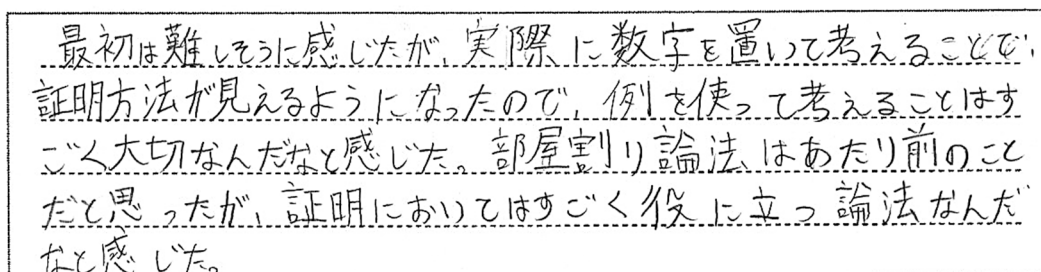 最初は難しそうに感じたが、実際に数字を置いて考えることで、
証明方法が見えるようになったので、例を使って考えることはす
ごく大切なんだなと感じた。部屋割り論法はあたり前のこと
だと思ったが、証明においてはすごく役に立つ論法なんだ
なと感じた。